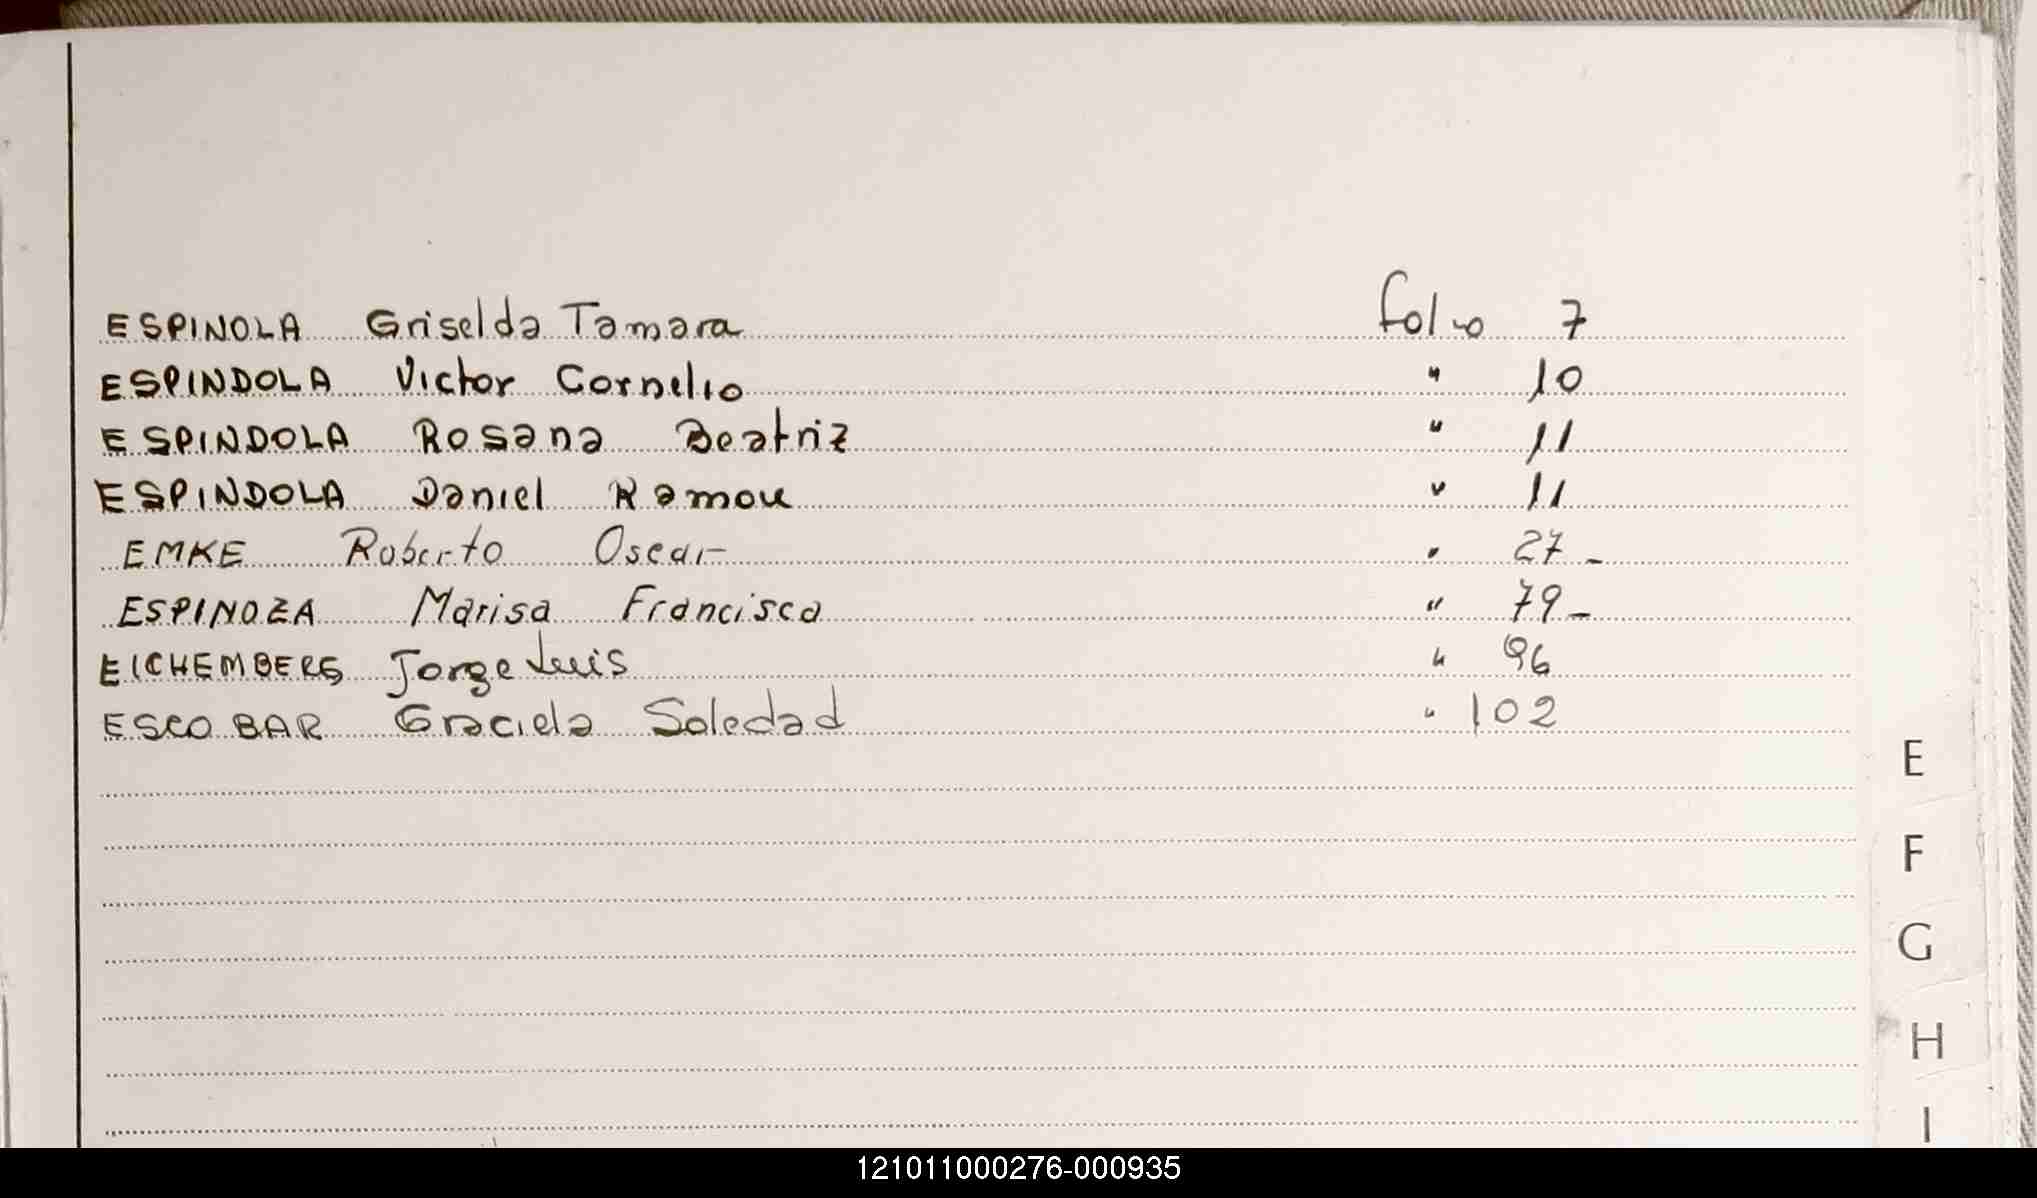 ESPINOLA Griselda Tamara folio 7
ESPINDOLA Victor Cornelio " 10
ESPINDOLA Rosana Beatriz " 11
ESPINDOLA Daniel Ramon " 11
EMKE Roberto Oscar " 27-
ESPINOZA Marisa Francisca " 79-
EICHEMBERG Jorge Luis " 96
ESCOBAR Graciela Soledad " 102
E
F
G
H
I
121011000276-000935